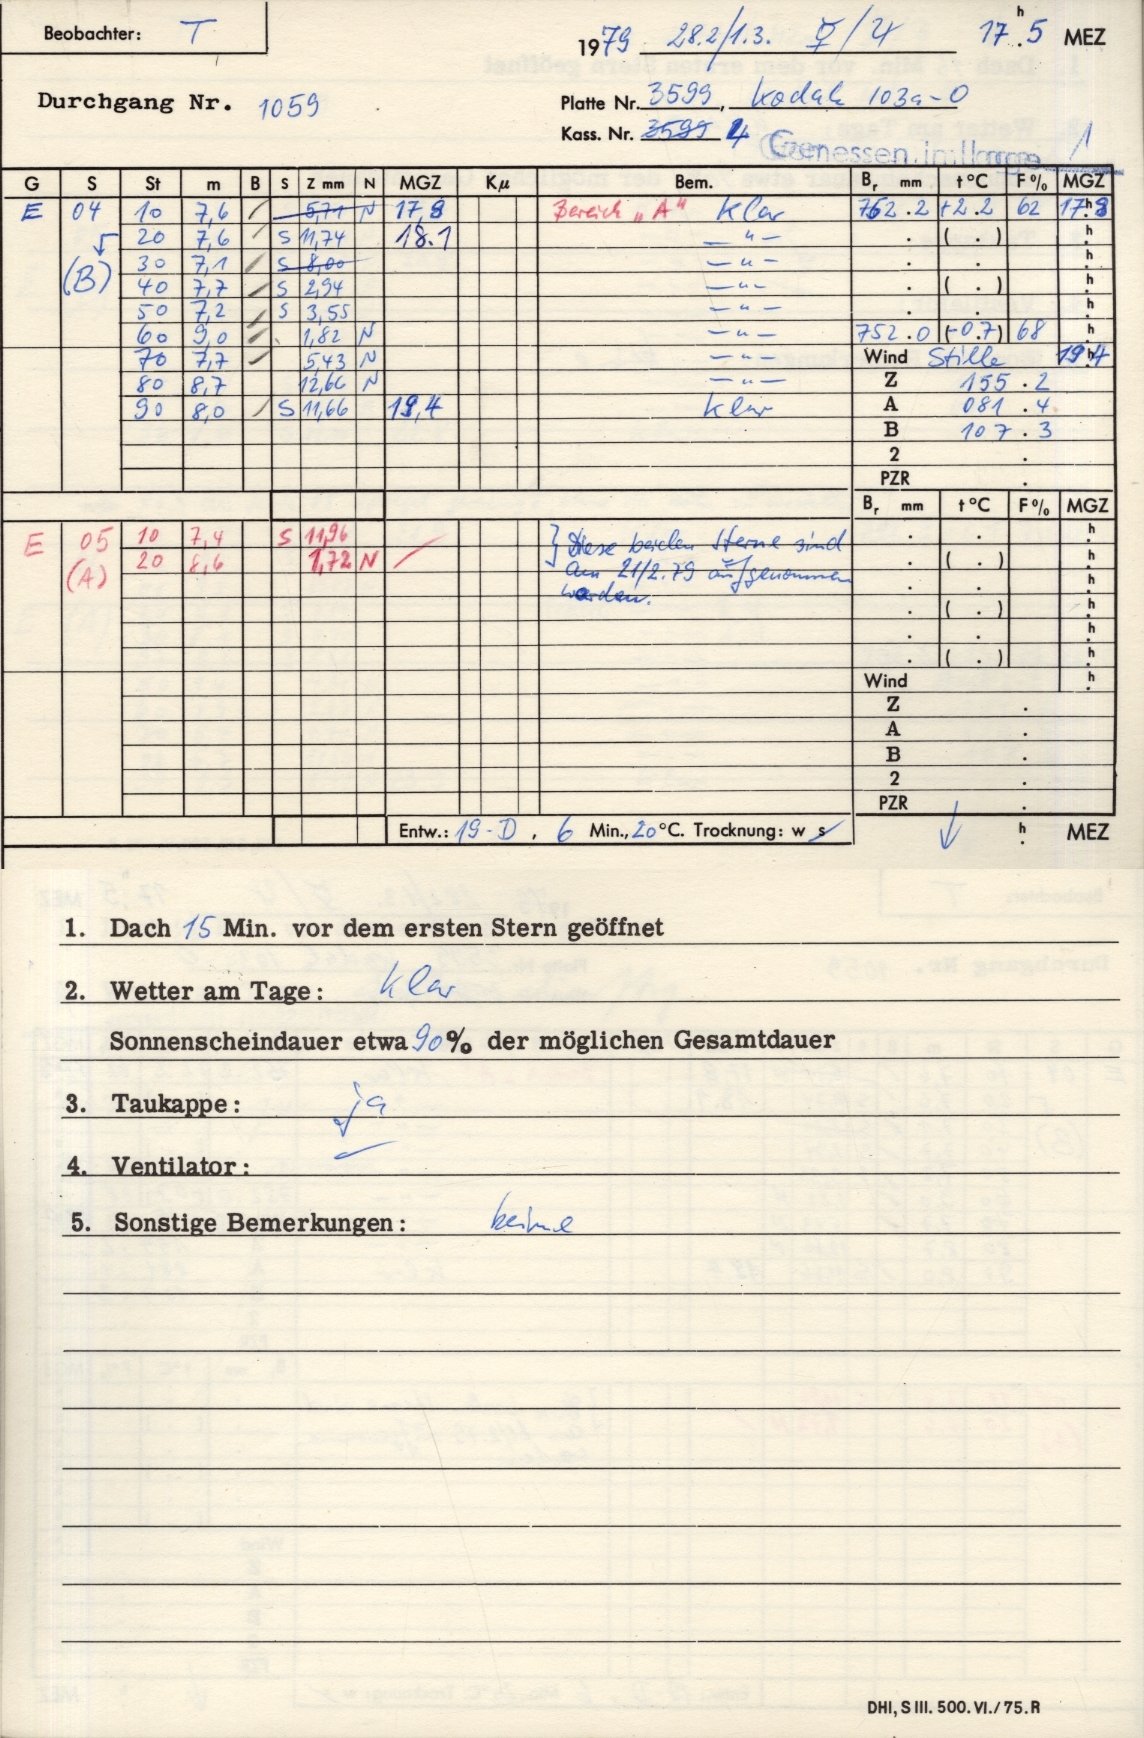 Beobachter: T
1979 28.2/1.3. ☿/♃ 17h.5 MEZ
Durchgang Nr. 1059
Platte Nr. 3599, Kodak 103a-O
Kass. Nr. 3599 4
Gemessen im Image 1
G S St m B S Z mm N MGZ Kμ Bem. Br mm t°C F% MGZ
E 04 10 7,6 / 5,71 N 17,8 Bereich "A" klar 762.2 +2.2 62 17h.8
20 7,6 / S 11,74 18.1 —"— . ( . ) h.
(B) 30 7,1 / S 8,00 —"— . . h.
40 7,7 / S 2,94 —"— . ( . ) h.
50 7,2 / S 3,55 —"— . . h.
60 9,0 / 1,82 N —"— 752.0 (-0.7) 68 h.
70 7,7 / 5,43 N —"— Wind Stille 19h.4
80 8,7 12,66 N —"— Z 155.2
90 8,0 / S 11,66 19,4 klar A 081.4
B 107.3
2 .
PZR .
Br mm t°C F% MGZ
E 05 10 7,4 S 11,96 } Diese beiden Sterne sind . . h.
(A) 20 8,6 1,72 N / am 21/2.79 aufgenommen . ( . ) h.
worden. . . h.
. ( . ) h.
. . h.
. ( . ) h.
Wind h.
Z .
A .
B .
2 .
PZR .
Entw.: 19-D, 6 Min., 20°C. Trocknung: w s h. MEZ
1. Dach 15 Min. vor dem ersten Stern geöffnet
2. Wetter am Tage: klar
Sonnenscheindauer etwa 90% der möglichen Gesamtdauer
3. Taukappe: ja
4. Ventilator: —
5. Sonstige Bemerkungen: keine
DHI, S III. 500. VI./75. R